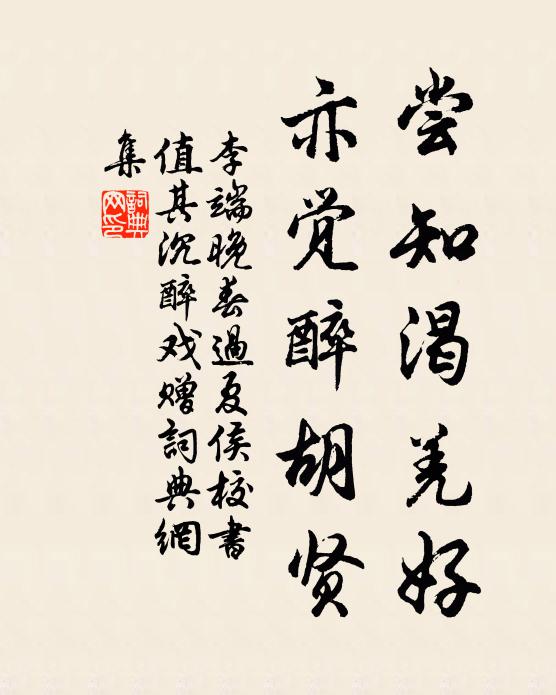 尝知渴羌好
亦觉醉胡贤
李端晚春過夏侯校書
值其沉醉戏赠詞典網
集
詞典網印